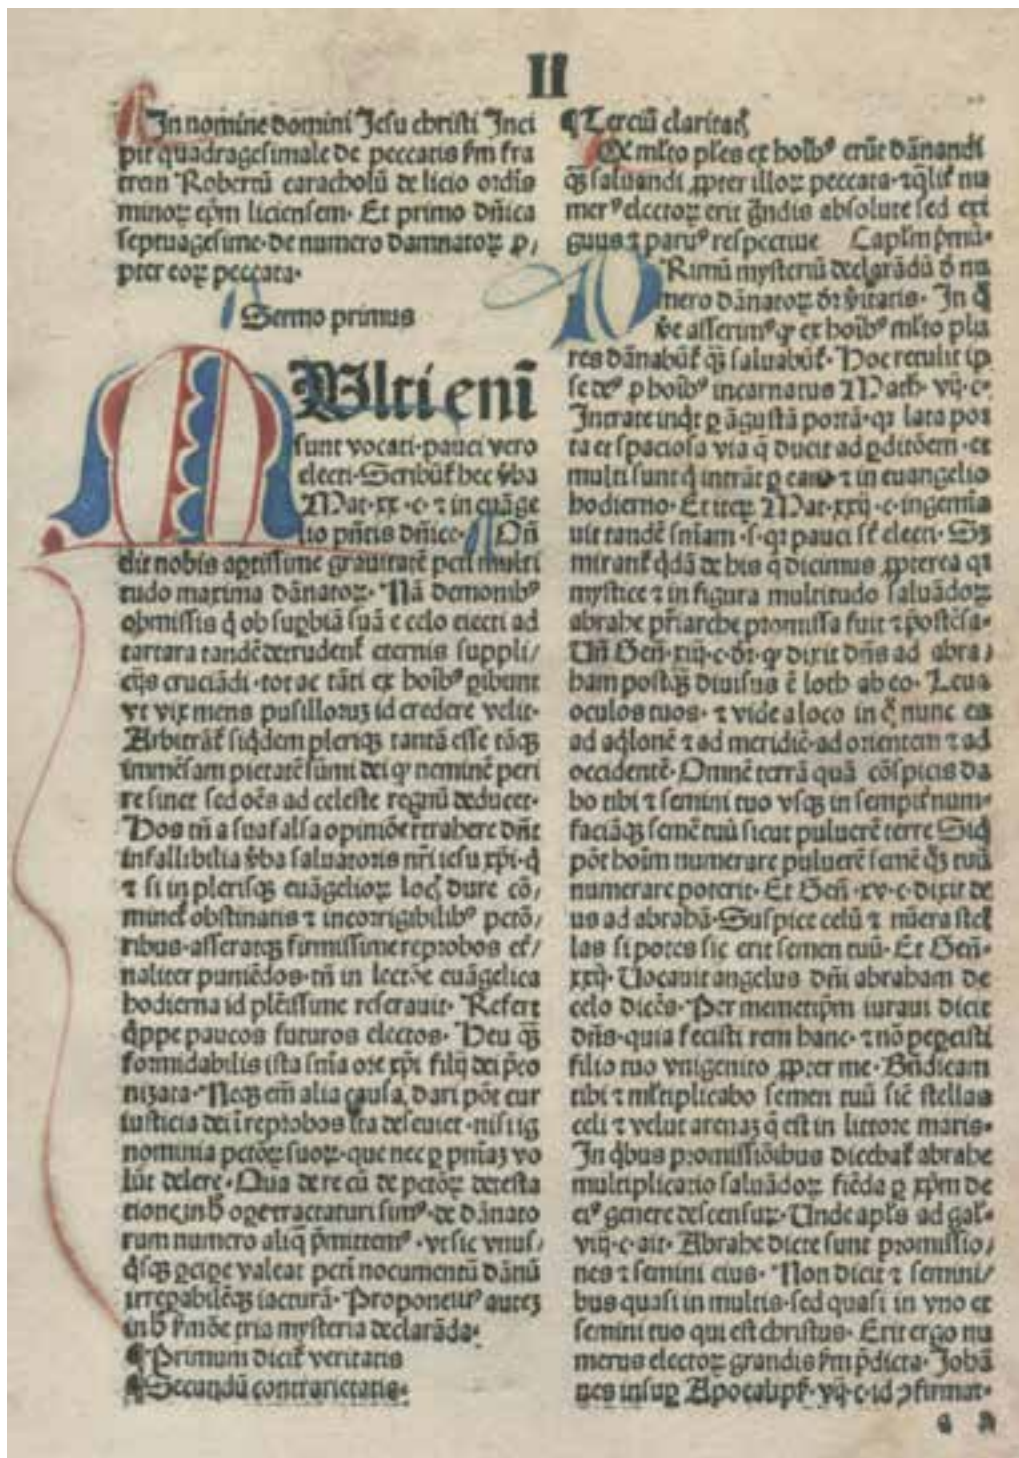 II
In nomine domini Jesu christi Inci
pit quadragesimale de peccatis ẜm fra
trem Robertū caracholū de licio ordīs
minoꝝ ep̄m liciensem. Et primo dn̄ica
septuagesime. de numero damnatoꝝ ꝓ/
pter eoꝝ peccata.
Sermo primus
MUlti enī
sunt vocati. pauci vero
electi. Scribūt̉ hec v̉ba
Mat. xx. c. ⁊ in euāge
lio pn̄tis dn̄ice. Oñ
dit nobis aptissime grauitatē pctī multi
tudo maxima dānatoꝝ. Nā demonibꝰ
obmissis q̇ ob suꝑbiā suā e celo eiecti ad
tartara tandē detrudent̉ eternis suppli/
cijs cruciādi. tot ac tāti ex hoībꝰ ꝑibunt
vt vix mens pusilloruꝫ id credere velit.
Arbitrāt̉ siq̇dem pleriqꝫ tantā esse tāqꝫ
immēsam pietatē sūmi dei ꝙ neminē peri
re sinet sed oēs ad celeste regnū deducet.
Hos tn̄ a sua falsa opiniōe retrahere dn̄t
infallibilia v̉ba saluatoris nr̄i iesu xp̄i. q̇
⁊ si in plerisqꝫ euāgelioꝝ locꝭ dure cō/
minet̉ obstinatis ⁊ incorrigibilibꝰ pctō/
ribus. asseratqꝫ firmissime reprobos et̉/
naliter puniēdos. tn̄ in lectōe euāgelica
hodierna id plēissime reserauit. Refert
q̇ppe paucos futuros electos. Heu qꝫ̄
formidabilis ista sn̄ia ore xp̄i filij dei p̄co
nizata. Neqꝫ em̄ alia causa dari pōt cur
iusticia dei ī reprobos ita deseuiet. nisi ig
nominia pctōꝝ suoꝝ. que nec ꝑ pn̄iaꝫ vo
lūt delere. Qua de re cū de pctōꝝ detesta
tione in h̄ oꝑe tractaturi simꝰ. de dānato
rum numero aliq̄ p̄mittemꝰ. vt sic vnus/
q̇sqꝫ ꝑciꝑe valeat pctī nocumentū dānū
irreꝑabilēqꝫ iacturā. Proponetur̉ auteꝫ
in h̄ ẜmōe tria mysteria declarāda.
¶ Primum dicit̉ veritatis
¶ Secundū contrarietatis.
¶ Terciū claritatꝭ
Ex ml̉to pl̉es ex hoībꝰ erūt dānandi
qꝫ̄ saluandi ꝓpter illoꝝ peccata. ⁊ql̉it̉ nu
merꝰ electoꝝ erit grandis absolute sed exi
guus ⁊ paruꝰ respectiue Capl̉m p̉mū.
PRimū mysteriū declarādū d̉ nu
mero dānatoꝝ dr̄ v̉itatis. In q̊
v̉e asserimꝰ ꝙ ex hoībꝰ ml̉to plu
res dānabūt̉ qꝫ̄ saluabūt̉. Hoc retulit ip
se deꝰ ꝓ hoībꝰ incarnatus Math. vij. c.
Intrate inq̇t ꝑ āgustā portā. qꝛ lata por
ta et spaciosa via q̄ ducit ad ꝑditōem. et
multi sunt q̇ intrāt ꝑ eam ⁊ in euangelio
hodierno. Et iteꝝ Mat. xxij. c. ingemia
uit tandē sn̄iam. s. qꝛ pauci st̉ electi. Sꝫ
mirant̉ q̇dā de his q̄ dicimus ꝓpterea qꝛ
mystice ⁊ in figura multitudo saluādoꝝ
abrahe pr̄iarche promissa fuit ⁊ p̄ostēsa.
Uñ Geñ. xiij. c. dr̄. ꝙ dixit dn̄s ad abra/
ham postqꝫ̄ diuisus ē loth ab eo. Leua
oculos tuos. ⁊ vide a loco in q̊ nunc es
ad aq̇lonē ⁊ ad meridiē. ad orientem ⁊ ad
occidentē. Omnē terrā quā cōspicis da
bo tibi ⁊ semini tuo vsqꝫ in sempit̉num.
faciāqꝫ semē tuū sicut puluerē terre Siq̇
pōt hoīm numerare puluerē semē qꝫ tuū
numerare poterit. Et Geñ. xv. c. dixit de
us ad abrahā. Suspice celū ⁊ nūera stel
las si potes sic erit semen tuū. Et Geñ.
xxij. Uocauit angelus dn̄i abraham de
celo dicēs. Per memetip̄m iuraui dicit
dn̄s. quia fecisti rem hanc. ⁊ nō peꝑcisti
filio tuo vnigenito ꝓpter me. Bn̄dicam
tibi ⁊ ml̉tiplicabo semen tuū sic̄ stellas
celi ⁊ velut arenaꝫ q̄ est in littore maris.
In q̇bus promissiōibus dicebat̉ abrahe
multiplicatio saluādoꝝ fiēda ꝑ xp̄m de
eiꝰ genere descensuꝝ. Unde apl̉s ad gal̉.
viij. c. ait. Abrahe dicte sunt promissio/
nes ⁊ semini eius. Non dicit ⁊ semini/
bus quasi in multis. sed quasi in vno et
semini tuo qui est christus. Erit ergo nu
merus electoꝝ grandis ẜm p̄dicta. Johā
nes insuꝑ Apocalipẜ. vij. c. id ꝯfirmat.